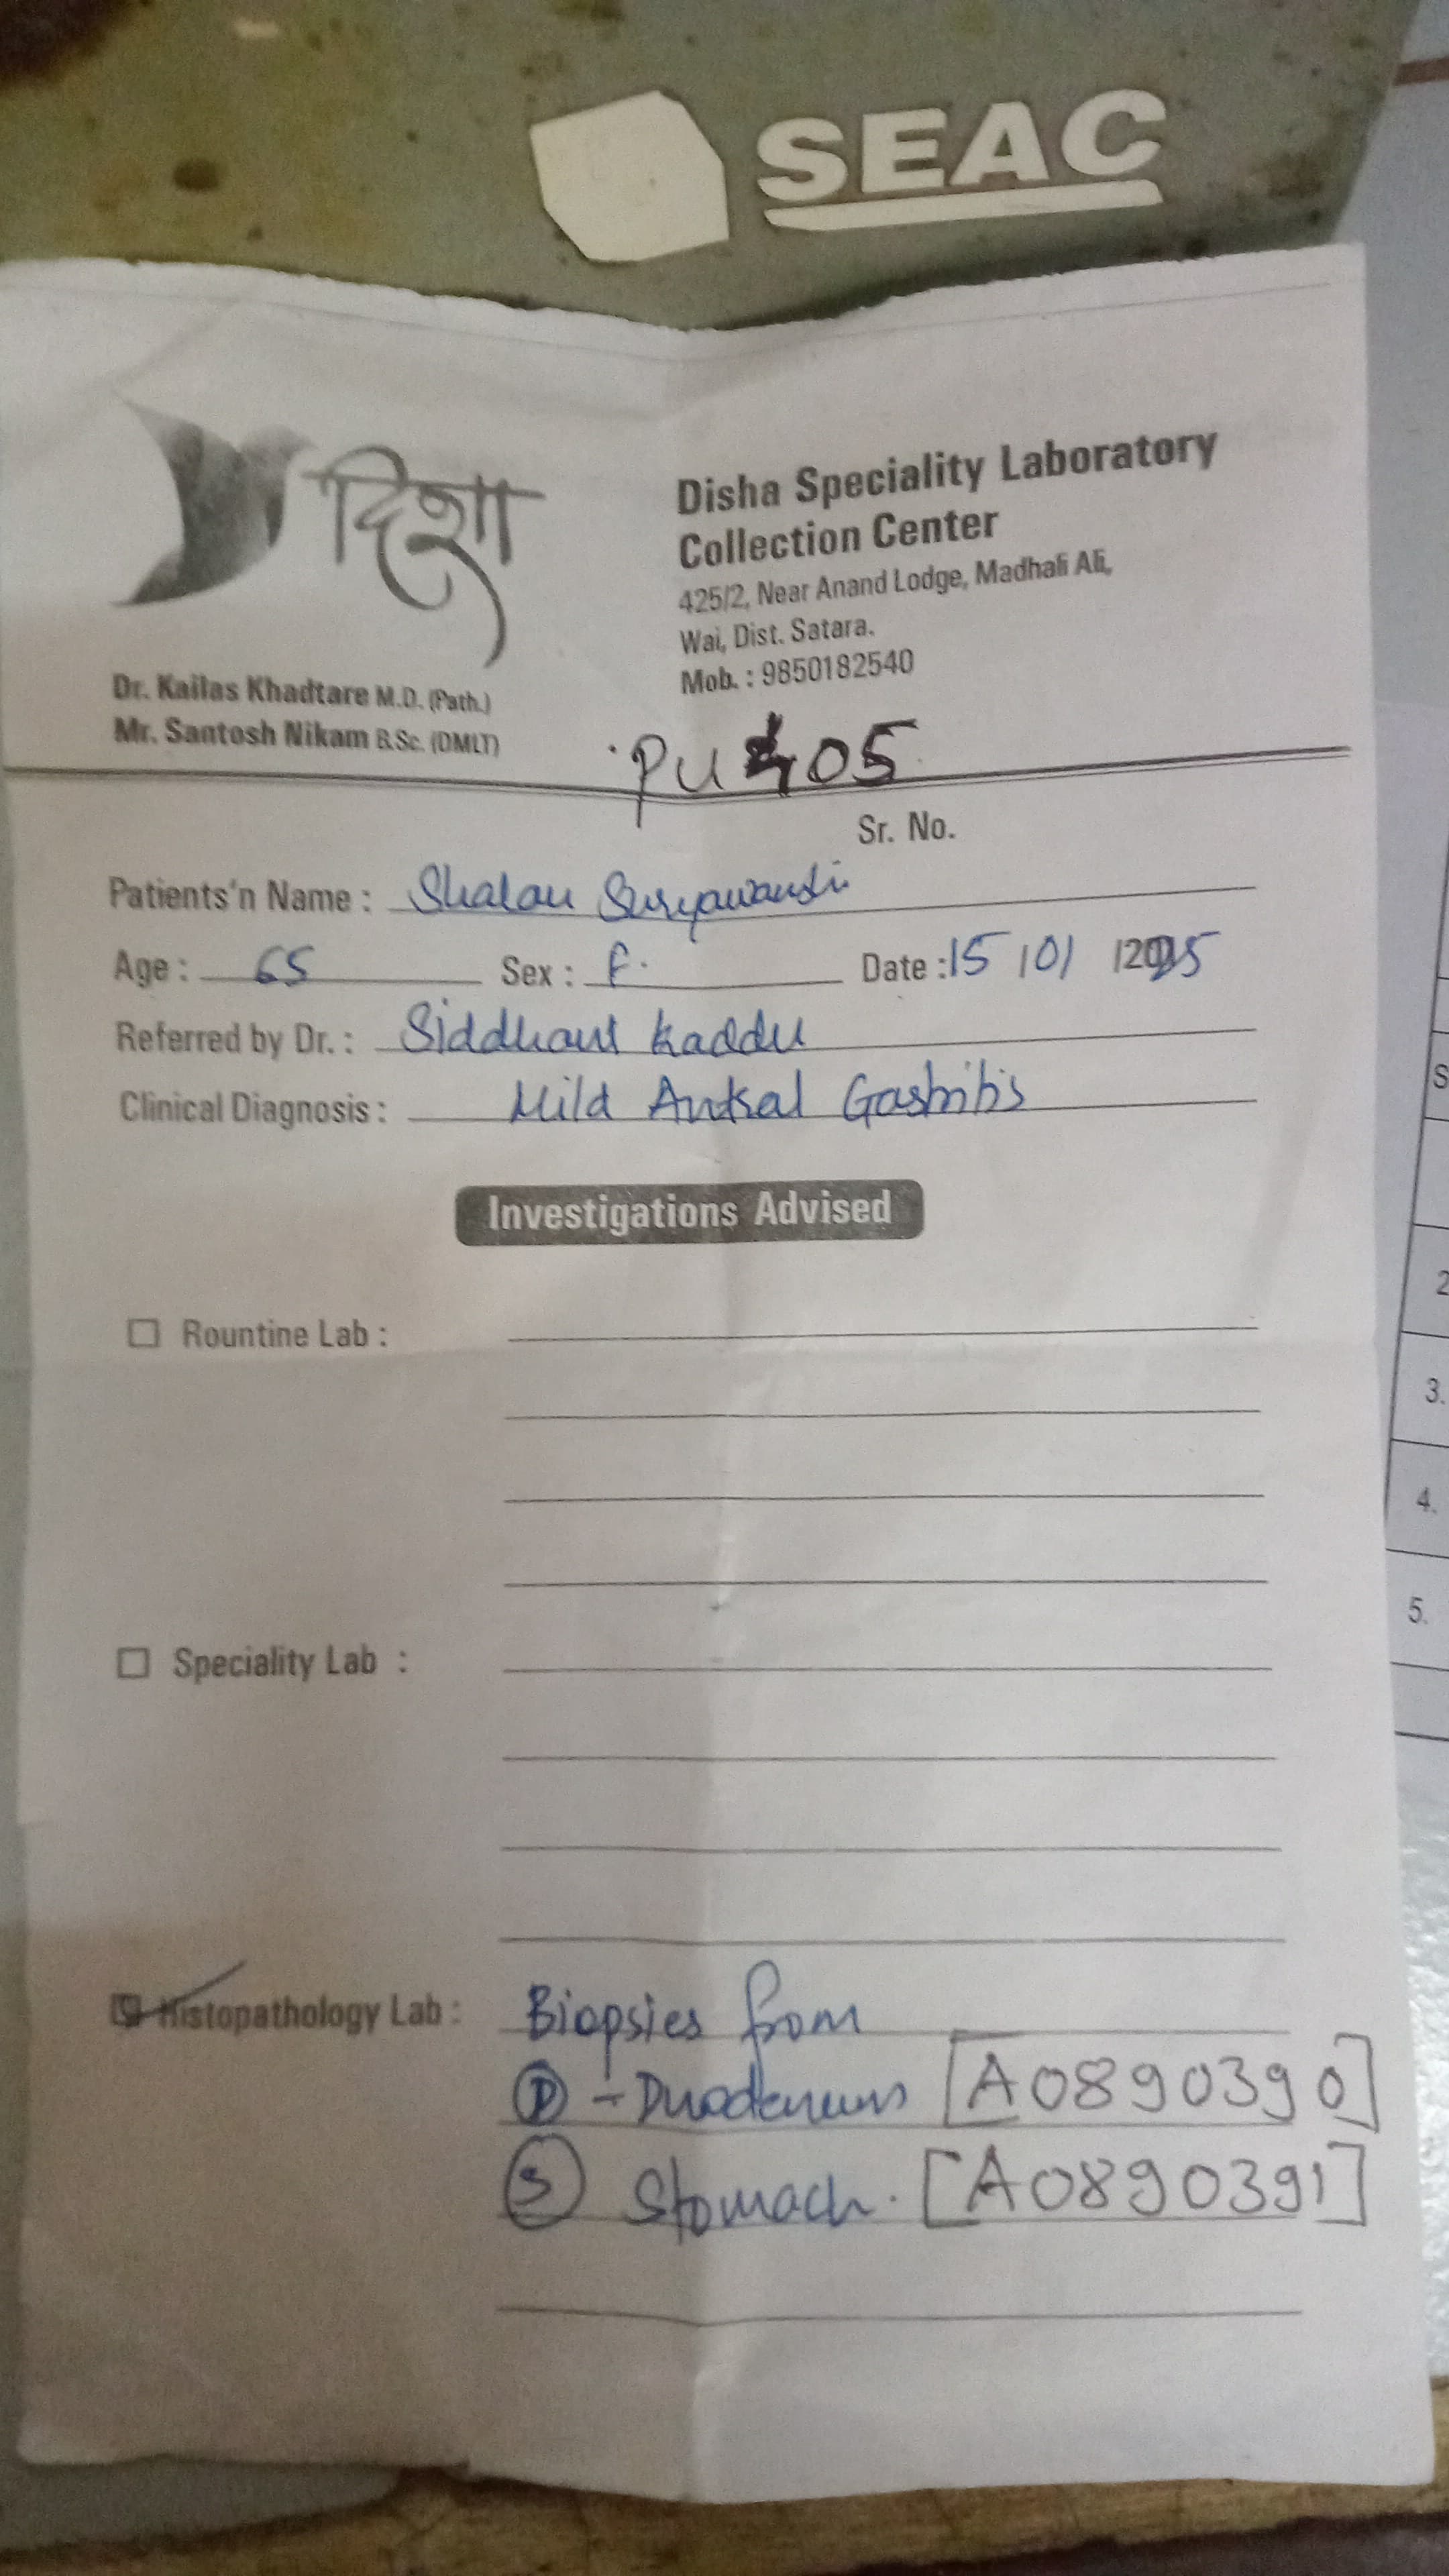 SEAC
दिशा
Disha Speciality Laboratory
Collection Center
425/2, Near Anand Lodge, Madhali Ali,
Wai, Dist. Satara.
Mob. : 9850182540
Dr. Kailas Khadtare M.D. (Path.)
Mr. Santosh Nikam B.Sc. (DMLT)
PU 405
Sr. No.
Patients'n Name : Shalan Suryawanshi
Age : 65 Sex : F. Date : 15 /01 /2025
Referred by Dr. : Siddhant Kaddu
Clinical Diagnosis : Mild Antral Gastritis
Investigations Advised
Rountine Lab :
Speciality Lab :
Histopathology Lab : Biopsies from
D - Duodenum [A0890390]
S Stomach. [A0890391]
S
2
3.
4.
5.